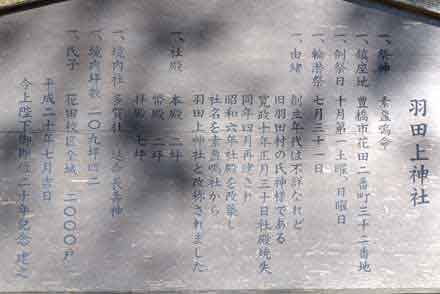 羽田上神社
一、祭神 素盞嗚命
一、鎮座地 豊橋市花田二番町三十二番地
一、例祭日 十月第一土曜、日曜日
一、輪潜祭 七月三十一日
一、由緒 創立年代は不詳なれど
旧羽田村の氏神様である
寛政十年正月三十日社殿焼失
同年四月再建され
昭和六年社殿を改築し
社名を素盞嗚社から
羽田上神社と改称されました
一、社殿 本殿 二坪
幣殿 二坪
拝殿 七坪
一、境内社 多賀社
一、境内坪数 二〇九坪四二
一、氏子 花田校区全域 二〇〇〇戸
平成二十年七月吉日
今上陛下御即位二十年記念 建之